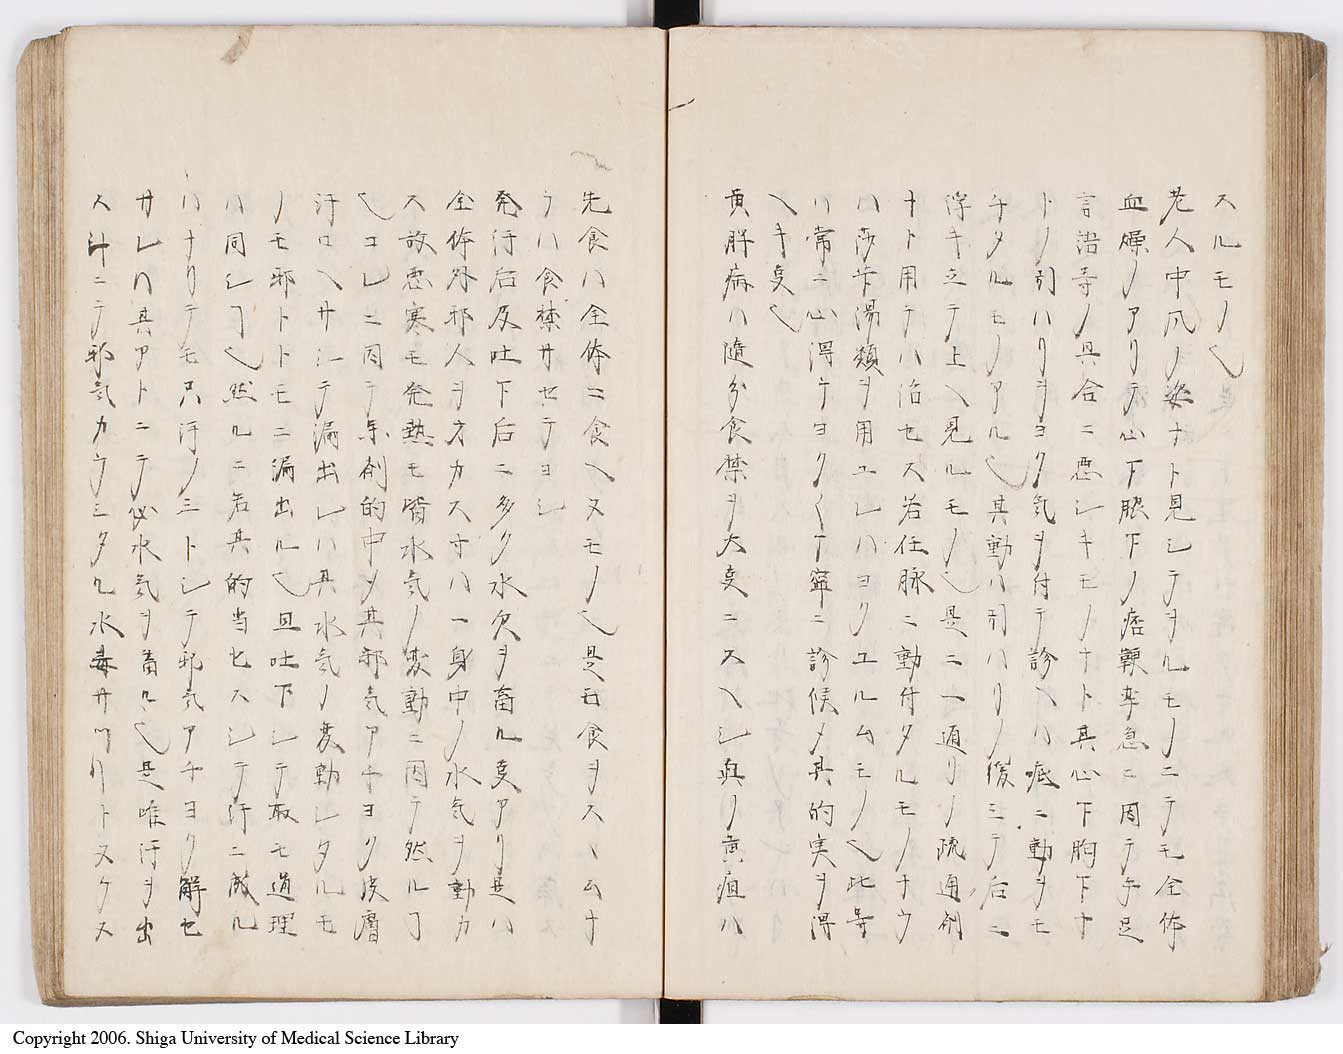 スルモノ也
老人中風ノ姿ナト見シテヲルモノニテモ全体
血燥ノアリテ心下脇下ノ痞鞕挛急ニ因テ手足
言語等ノ具合ニ悪シキモノナト其心下胸下ナ
トノ引ハリヲヨク気ヲ付テ診ヘハ底ニ動ヲモ
チタルモノアル也其動ハ引ハリノ緩ミテ后ニ
浮キ立テ上ヘ見ルモノ也是ニ一通リノ疏通剤
ナト用テハ治セス若任脉ニ動付タルモノナラ
ハ莎芐湯類ヲ用ユレハヨクユルムモノ也此等
ハ常ニ心得ケヨク〱丁寧ニ診候〆其的実ヲ得
ヘキ叓也
黄胖病ハ随分食禁ヲ大叓ニスヘシ真ノ黄疸ハ
先食ハ全体ニ食ヘヌモノ也是モ食ヲスヽムナ
ラハ食禁サセテヨシ
発汗后及吐下后ニ多ク水欠ヲ畜ル叓アリ是ハ
全体外邪人ヲオカス寸ハ一身中ノ水気ヲ動カ
ス故悪寒モ発熱モ皆水気ノ変動ニ因テ然ルヿ
也コレニ因テ薬剤的中〆其邪気アチヨリ皮膚
汗口ヘサシテ漏出レハ其水気ノ変動シタルモ
ノモ邪トトモニ漏出ル也且吐下シテ取モ道理
ハ同シヿ也然ルニ若其的当セスシテ汗ニ成ル
ハナリテモ只汗ノミトシテ邪気アチヨリ解セ
サレハ其アトニテ必水気ヲ畜ル也是唯汗ヲ出
ス計ニテ邪気カラミタル水毒サツハリトヌケス